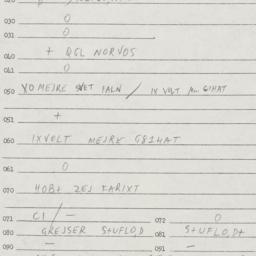 030 O
031 O
040 + QGL NORVOS
041 O
050 YOMEJRE SVET IALN / IXVELT
051 +
060 IXVELT MEJRE G81HAT
061 O
070 HOB+ ZEJ TARIXT
071 CI / — 072 O
080 GREJSER S+UFLO,D 081 S+UFLO,D+
090 — 091 —